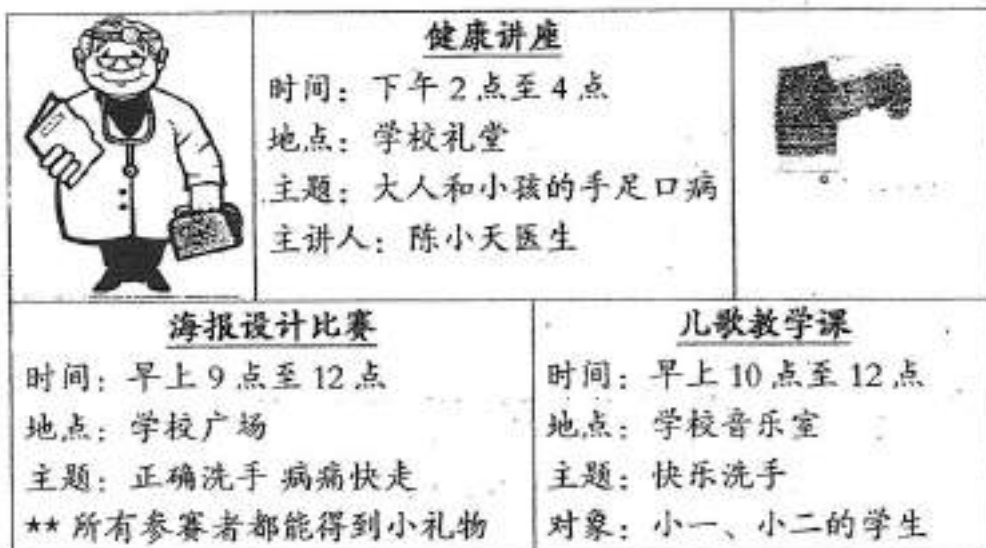 健康讲座
时间：下午 2 点至 4 点
地点：学校礼堂
主题：大人和小孩的手足口病
主讲人：陈小天医生
海报设计比赛
时间：早上 9 点至 12 点
地点：学校广场
主题：正确洗手 病痛快走
★★ 所有参赛者都能得到小礼物
儿歌教学课
时间：早上 10 点至 12 点
地点：学校音乐室
主题：快乐洗手
对象：小一、小二的学生